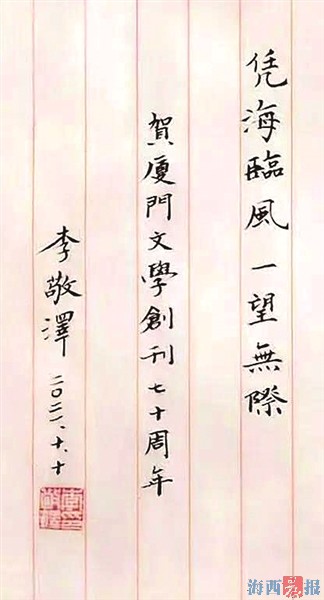 凭海臨風一望無際
賀廈門文學創刊七十周年
李敬澤二〇二一、十、十
海西晨报